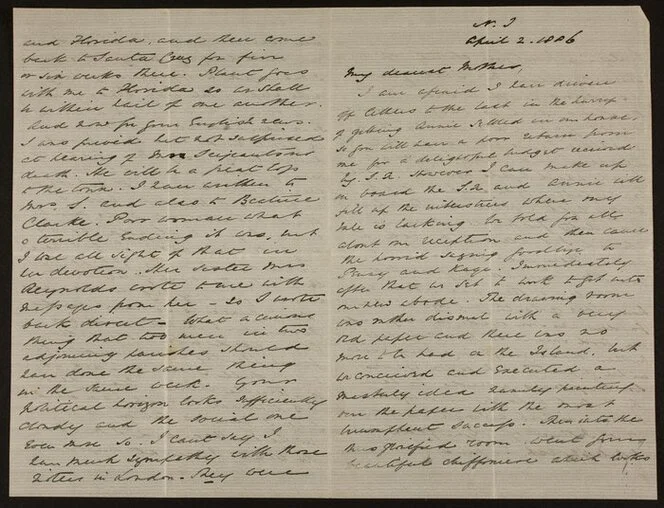 and Florida, and then come
back to Santa Cruz for five
or six weeks there. Plant goes
with me to Florida so we shall
be within hail of one another.
And now for your English news.
I was grieved but not surprised
at hearing of Mr Serjeantson's
death. He will be a great loss
to the town. I have written to
Mrs S. and also to Beatrice
Clarke. Poor woman what
a terrible ending it was, but
I lose all sight of that in
her devotion. Her sister Mrs
Reynolds wrote to me with
messages from her – so I wrote
back direct – What a curious
thing that two men in two
adjoining parishes should
have done the same thing
in the same week. Your
political horizon looks sufficiently
cloudy and the social one
even more so. I can't say I
have much sympathy with those
rioters in London – They were
N. 3
April 2. 1886
My dearest Mother,
I am afraid I have driven
off letters to the last in the hurry
of getting Annie settled in our house,
so you will have a poor return from
me for a delightful budget received
by. However I can make up
on board the and Annie will
fill up the interstices where my
tale is lacking. We told you all
about our reception and then came
the horrid saying goodbye to
and. Immediately
after that we set to work to get into
our new abode. The drawing room
was rather dismal with a very
old paper and there was no
more to be had on the Island, but
we conceived and executed a
masterly idea painting
over the paper with the most
triumphant success. Then into the
glorified room went your
beautiful chiffoniere which looks